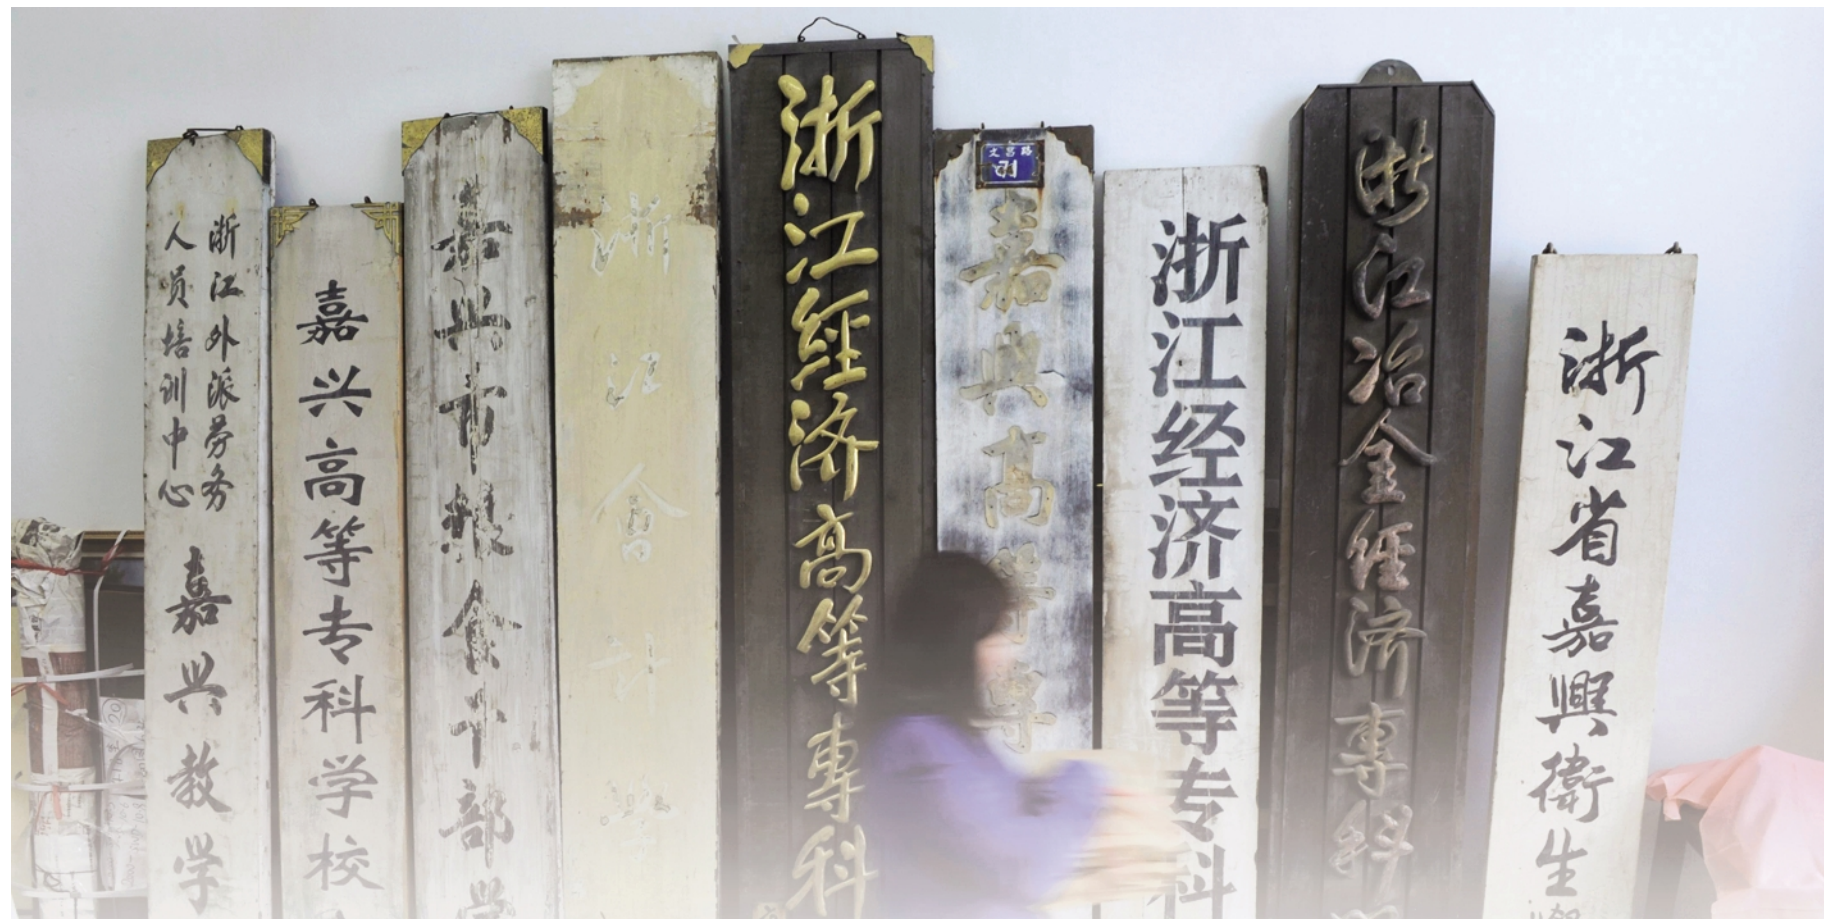 浙江外派劳务
人员培训中心
嘉兴教学
嘉兴高等专科学校
嘉兴市粮食干部学
浙江會計學
浙江經济高等專科
文昌路
嘉興高等專
浙江经济高等专科
浙江冶金经济專科
浙江省嘉興衛生